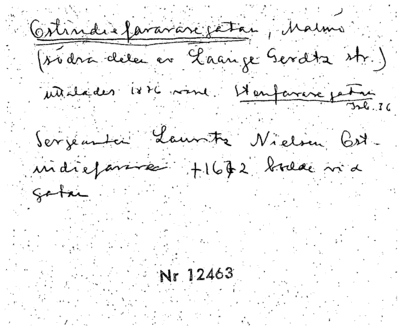 Ostindiefararegatan, Malmö
(södra delen av Laange Gerdtz str.)
uttalades 1876 vine. Stenfararegatan
Isb. 26
Sergeanten Lauritz Nielsen Ost-
indiefarare †1672 bodde vid
gatan
Nr 12463